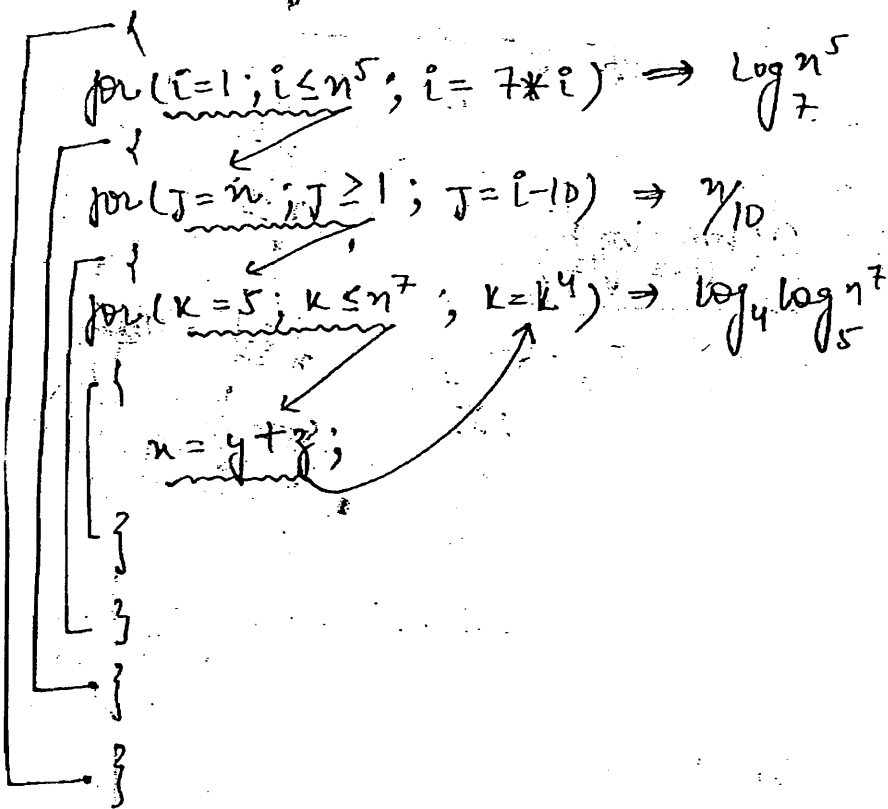 {
for (i=1 ; i≤n⁵ ; i= 7*i) ⇒ Log₇ n⁵
{
for (J=n ; J≥1 ; J=i-10) ⇒ n/10
{
for (K=5 ; K≤n⁷ ; K=K⁴) ⇒ log₄ log₅ n⁷
{
x = y+z ;
}
}
}
}